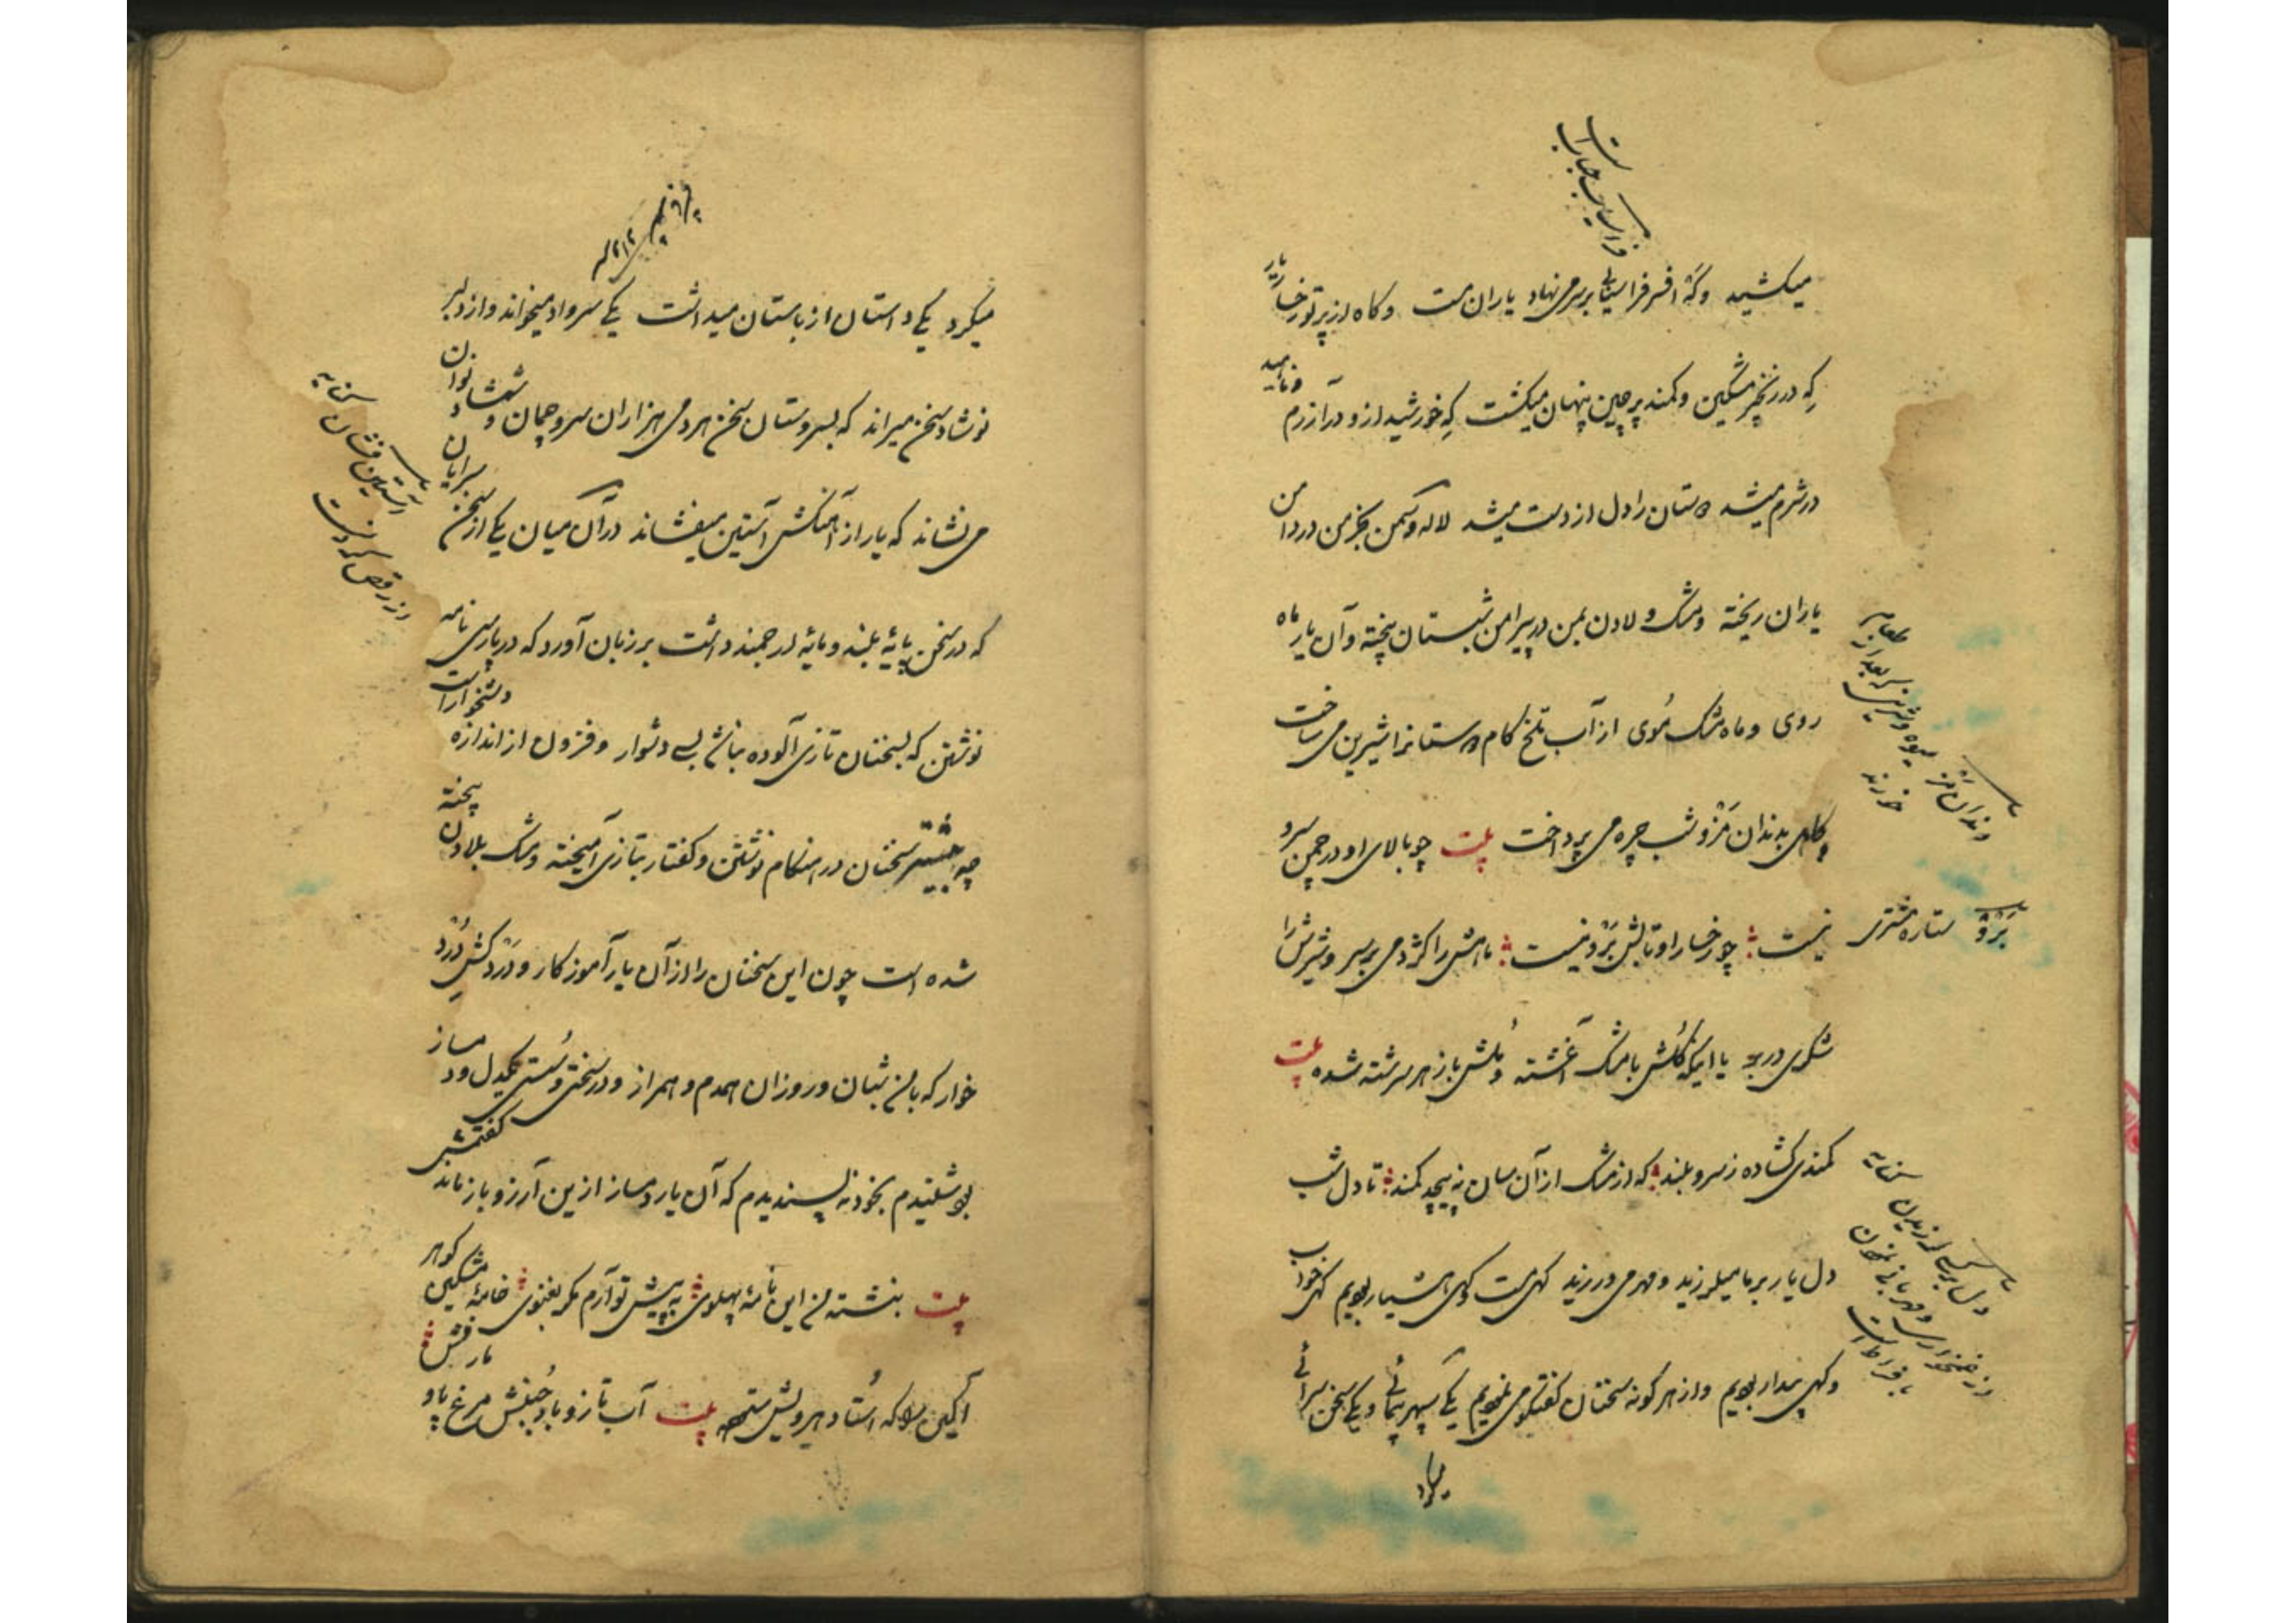 میکشید وگه افسر فراسیابی بر سر می نهاد یاران مست و گاه از پرتو رخسار یار
که در زنجیر مشکین و کمند پرچین پنهان میگشت که خورشید ازو در آزرم و ناهید
در شرم میشد مستان را دل از دست میشد لاله و سمن بخرمن در دامن
یاران ریخته و مشک و لادن بمن در پیرامن شبستان بیخته و آن یار ماه
روی و ماه مشک موی از آب تلخ کام مستانرا شیرین می ساخت
گاهی بدندان مزو شب چره می پرداخت بیت چو بالای او در چمن سرو
نیست چو رخسار او تابش بزو نیست ماهش را کژدمی بر سر و شیرش را
شکری در بر یا اینکه گلش با مشک آغشته و ملش باز هر سرشته شده بیت
کمندی گشاده ز سرو بلند که از مشک از آن سان نه پیچد کمند تا دل شب
دل یار بر ما میلرزید و مهر می ورزید گهی مست و گهی هشیار بودیم گهی خواب
و گهی بیدار بودیم و از هر گونه سخنان گفتگو می نمودیم یکی سپهر پیمائی و یکی سخن سرائی
میکرد
ستاره مشتری
میکرد یکی داستان از باستان میداشت یکی سرواد میخواند و از دلبر
نوشاد سخن میراند که بسروستان سخن هر دمی هزاران سرو چمان و شمشاد نوان
می نشاند که یار از آهنگش آستین میفشاند در آن میان یکی از سخن سرایان
که در سخن پایه بلند و مایه ارجمند داشت بر زبان آورد که در پارسی نامه
نوشتن که بسخنان تازی آلوده نباشد بسی دشوار و فزون از اندازه دشخوار است
چه بیشتر سخنان در هنگام نوشتن و گفتار بتازی آمیخته و مشک بلادن بیخته
شده است چون این سخنان را از آن یار آموزگار و درد کش درد
خوار که با من شبان و روزان همدم و همراز و در سختی و سستی یکدل و دمساز
بود شنیدم بخود نه پسندیدم که آن یار دمساز ازین آرزو باز ماند گفتمش
بیت بنشته من این نامه پهلوی به پیش تو آرم مگر بغنوی خامه مشکین گوهر
آگین را که استاد پیرویش ستوده بیت آب تاز و باد جنبش مرغ پا و مار فش